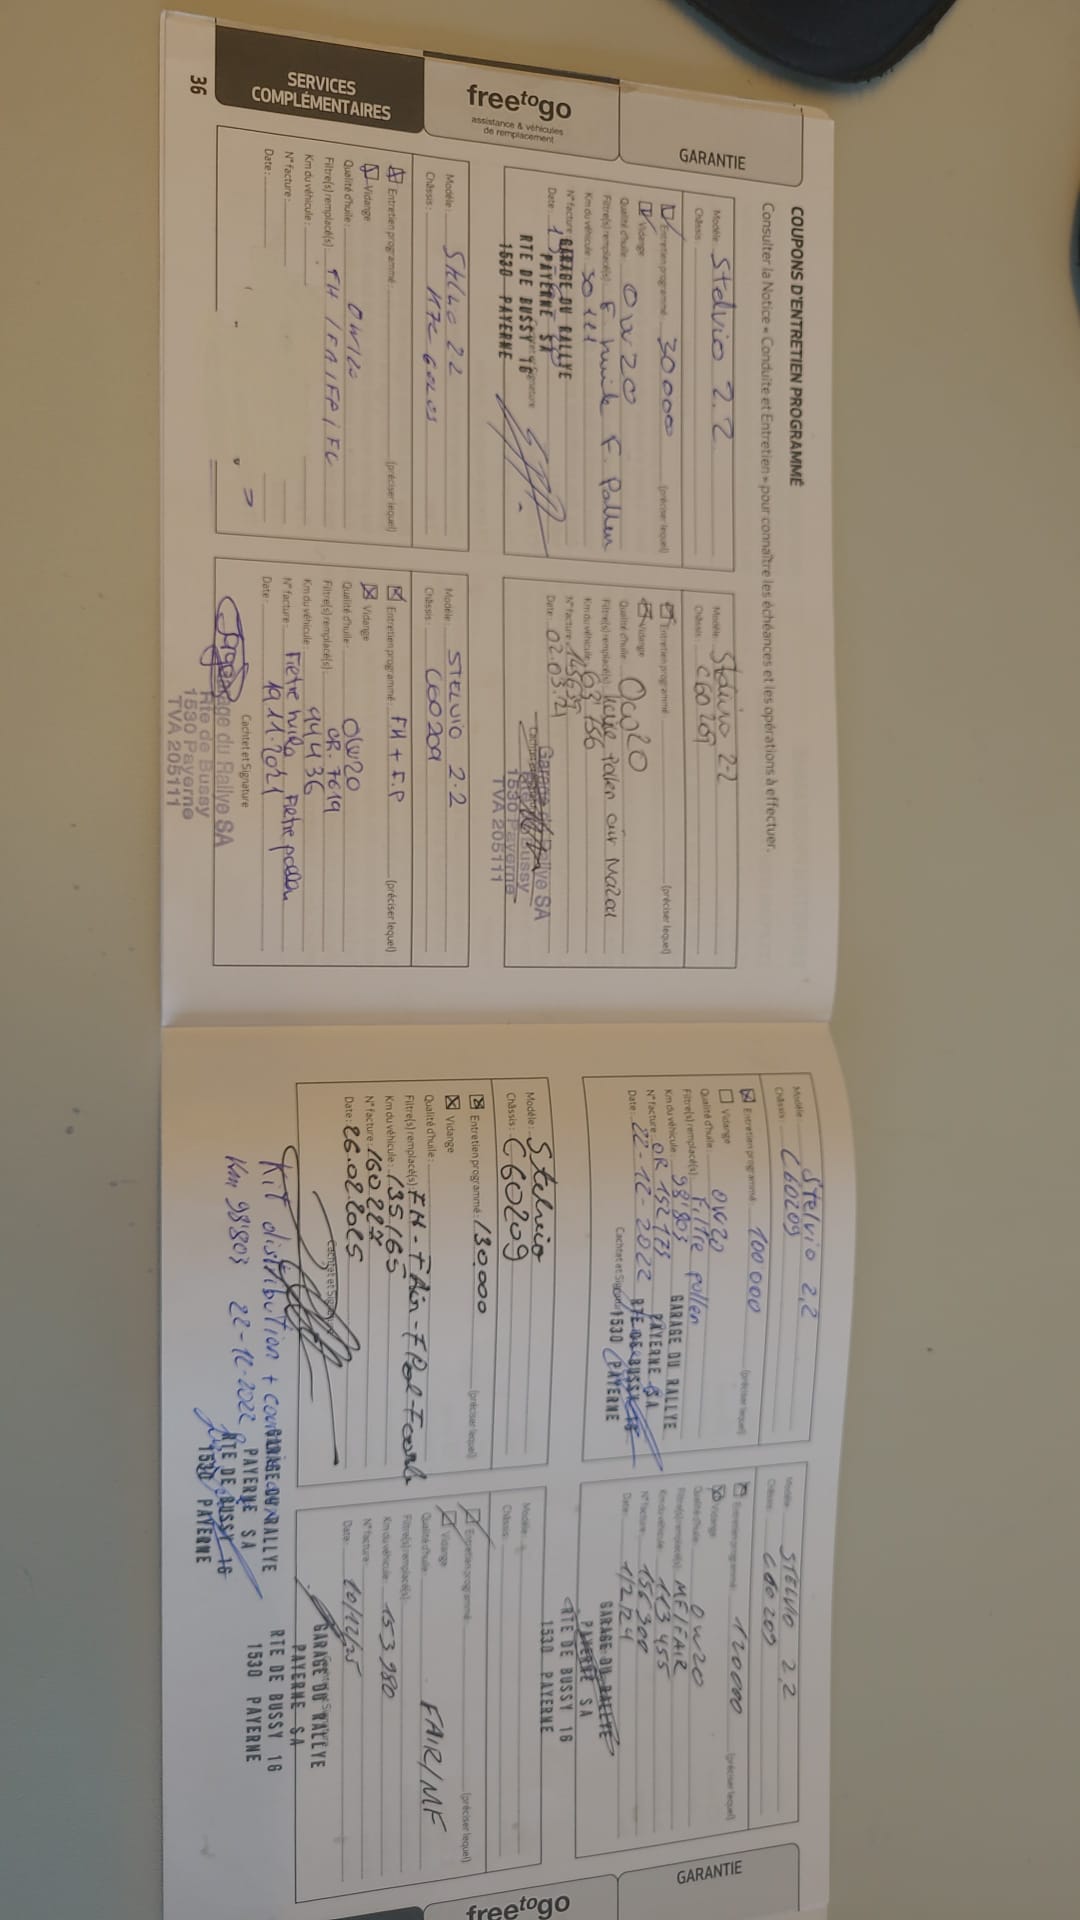 COUPONS D'ENTRETIEN PROGRAMMÉ
Consulter la Notice « Conduite et Entretien » pour connaître les échéances et les opérations à effectuer.
GARANTIE
freetogo
assistance & véhicules
de remplacement
SERVICES
COMPLÉMENTAIRES
36
Modèle: Stelvio 2.2
Châssis:
Entretien programmé: 30000 (préciser lequel)
Vidange
Qualité d'huile: 0W20
Filtre(s) remplacé(s): F. huile F. Pollen
Km du véhicule: 30111
N° facture:
Date:
GARAGE DU RALLYE
PAYERNE SA
RTE DE BUSSY 16
1530 PAYERNE
Modèle: Stelvio 2.2
Châssis: C60209
Entretien programmé: (préciser lequel)
Vidange
Qualité d'huile: 0W20
Filtre(s) remplacé(s):
Km du véhicule:
N° facture:
Date: 02.03.21
Garage du Rallye SA
Rte de Bussy
1530 Payerne
TVA 205111
Modèle:
Châssis:
Entretien programmé: (préciser lequel)
Vidange
Qualité d'huile: 0W20
Filtre(s) remplacé(s): FH / FA / FP / FC
Km du véhicule:
N° facture:
Date:
Modèle: Stelvio 2.2
Châssis: C60209
Entretien programmé: FH + F.P (préciser lequel)
Vidange
Qualité d'huile: 0W20
Filtre(s) remplacé(s): OR. 7619
Km du véhicule: 94436
N° facture: Filtre huile Filtre pollen
Date: 19.11.2021
Cachet et Signature
Garage du Rallye SA
Rte de Bussy
1530 Payerne
TVA 205111
Modèle: Stelvio 2.2
Châssis: C60209
Entretien programmé: 100'000 (préciser lequel)
Vidange
Qualité d'huile: 0W20
Filtre(s) remplacé(s): Filtre pollen
Km du véhicule: 98'803
N° facture: OR 152175
Date: 22-12-2022
Cachet et Signature
GARAGE DU RALLYE
PAYERNE SA
RTE DE BUSSY 16
1530 PAYERNE
Modèle: STELVIO 2.2
Châssis: C60209
Entretien programmé: 120000 (préciser lequel)
Vidange
Qualité d'huile: 0W20
Filtre(s) remplacé(s): MF/FAIR
Km du véhicule: 113455
N° facture: 156300
Date: 1/2/24
GARAGE DU RALLYE
PAYERNE SA
RTE DE BUSSY 16
1530 PAYERNE
Modèle: Stelvio
Châssis: C60209
Entretien programmé: 130.000 (préciser lequel)
Vidange
Qualité d'huile:
Filtre(s) remplacé(s): FH-FAir-FPol-
Km du véhicule: 135165
N° facture: 160227
Date: 26.02.2025
Cachet et Signature
Kit distribution +
Km 98'803 22-12-2022
GARAGE DU RALLYE
PAYERNE SA
RTE DE BUSSY 16
1530 PAYERNE
Modèle:
Châssis:
Entretien programmé: (préciser lequel)
Vidange
Qualité d'huile: FAIR/MF
Filtre(s) remplacé(s):
Km du véhicule: 153980
N° facture:
Date: 10/12/25
GARAGE DU RALLYE
PAYERNE SA
RTE DE BUSSY 16
1530 PAYERNE
GARANTIE
freetogo